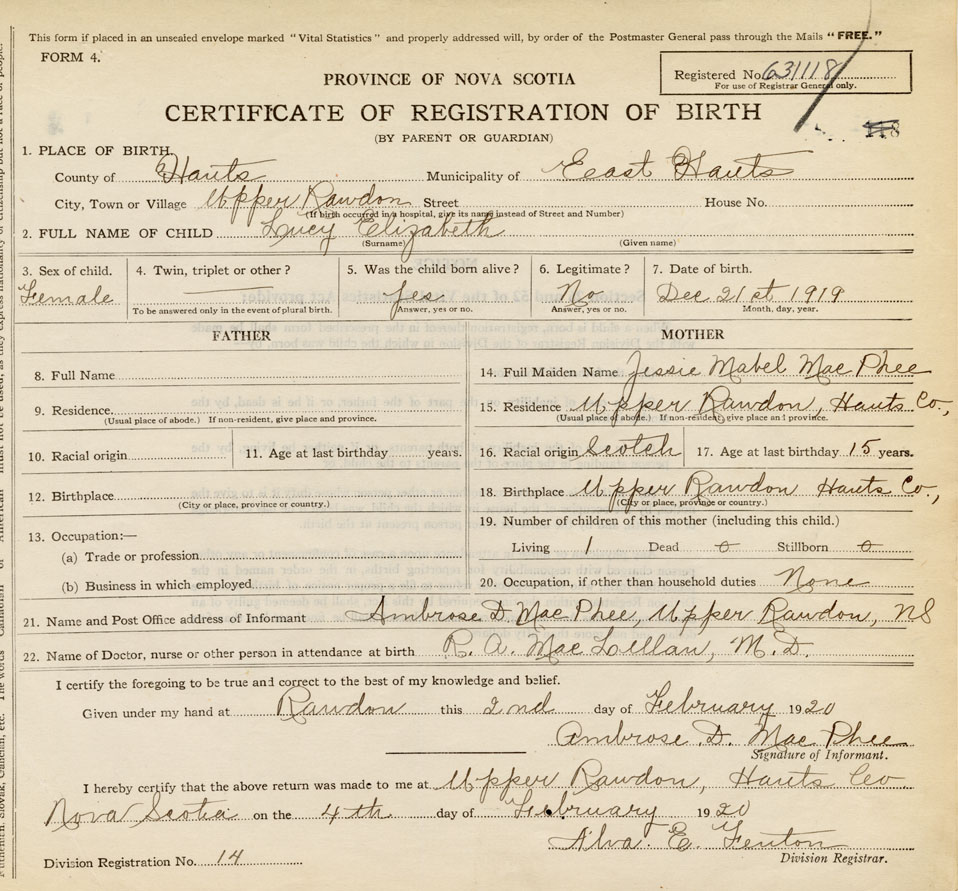 This form if placed in an unsealed envelope marked "Vital Statistics" and properly addressed will, by order of the Postmaster General pass through the Mails "FREE."
FORM 4.
Registered No. 631118
For use of Registrar General only.
PROVINCE OF NOVA SCOTIA
CERTIFICATE OF REGISTRATION OF BIRTH
118
(BY PARENT OR GUARDIAN)
1. PLACE OF BIRTH.
County of Hants Municipality of East Hants
City, Town or Village Upper Rawdon Street House No.
(If birth occurred in a hospital, give its name instead of Street and Number)
2. FULL NAME OF CHILD Lucy Elizabeth
(Surname) (Given name)
3. Sex of child. 4. Twin, triplet or other? 5. Was the child born alive? 6. Legitimate? 7. Date of birth.
Female Yes No Dec 21st 1919
To be answered only in the event of plural birth. Answer, yes or no. Answer, yes or no. Month, day, year.
FATHER
8. Full Name
9. Residence.
(Usual place of abode.) If non-resident, give place and province.
10. Racial origin 11. Age at last birthday years.
12. Birthplace
(City or place, province or country.)
13. Occupation:—
(a) Trade or profession
(b) Business in which employed
MOTHER
14. Full Maiden Name Jessie Mabel MacPhee
15. Residence Upper Rawdon, Hants Co.,
(Usual place of abode.) If non-resident, give place and province.
16. Racial origin Scotch 17. Age at last birthday 15 years.
18. Birthplace Upper Rawdon Hants Co.,
(City or place, province or country.)
19. Number of children of this mother (including this child.)
Living 1 Dead 0 Stillborn 0
20. Occupation, if other than household duties None
21. Name and Post Office address of Informant Ambrose D MacPhee, Upper Rawdon, NS
22. Name of Doctor, nurse or other person in attendance at birth R. A. MacLellan, M.D.
I certify the foregoing to be true and correct to the best of my knowledge and belief.
Given under my hand at Rawdon this 2nd day of February 1920
Ambrose. D. MacPhee
Signature of Informant.
I hereby certify that the above return was made to me at Upper Rawdon, Hants Co
Nova Scotia on the 4th day of February 1920
Alva. E. Fenton
Division Registrar.
Division Registration No. 14